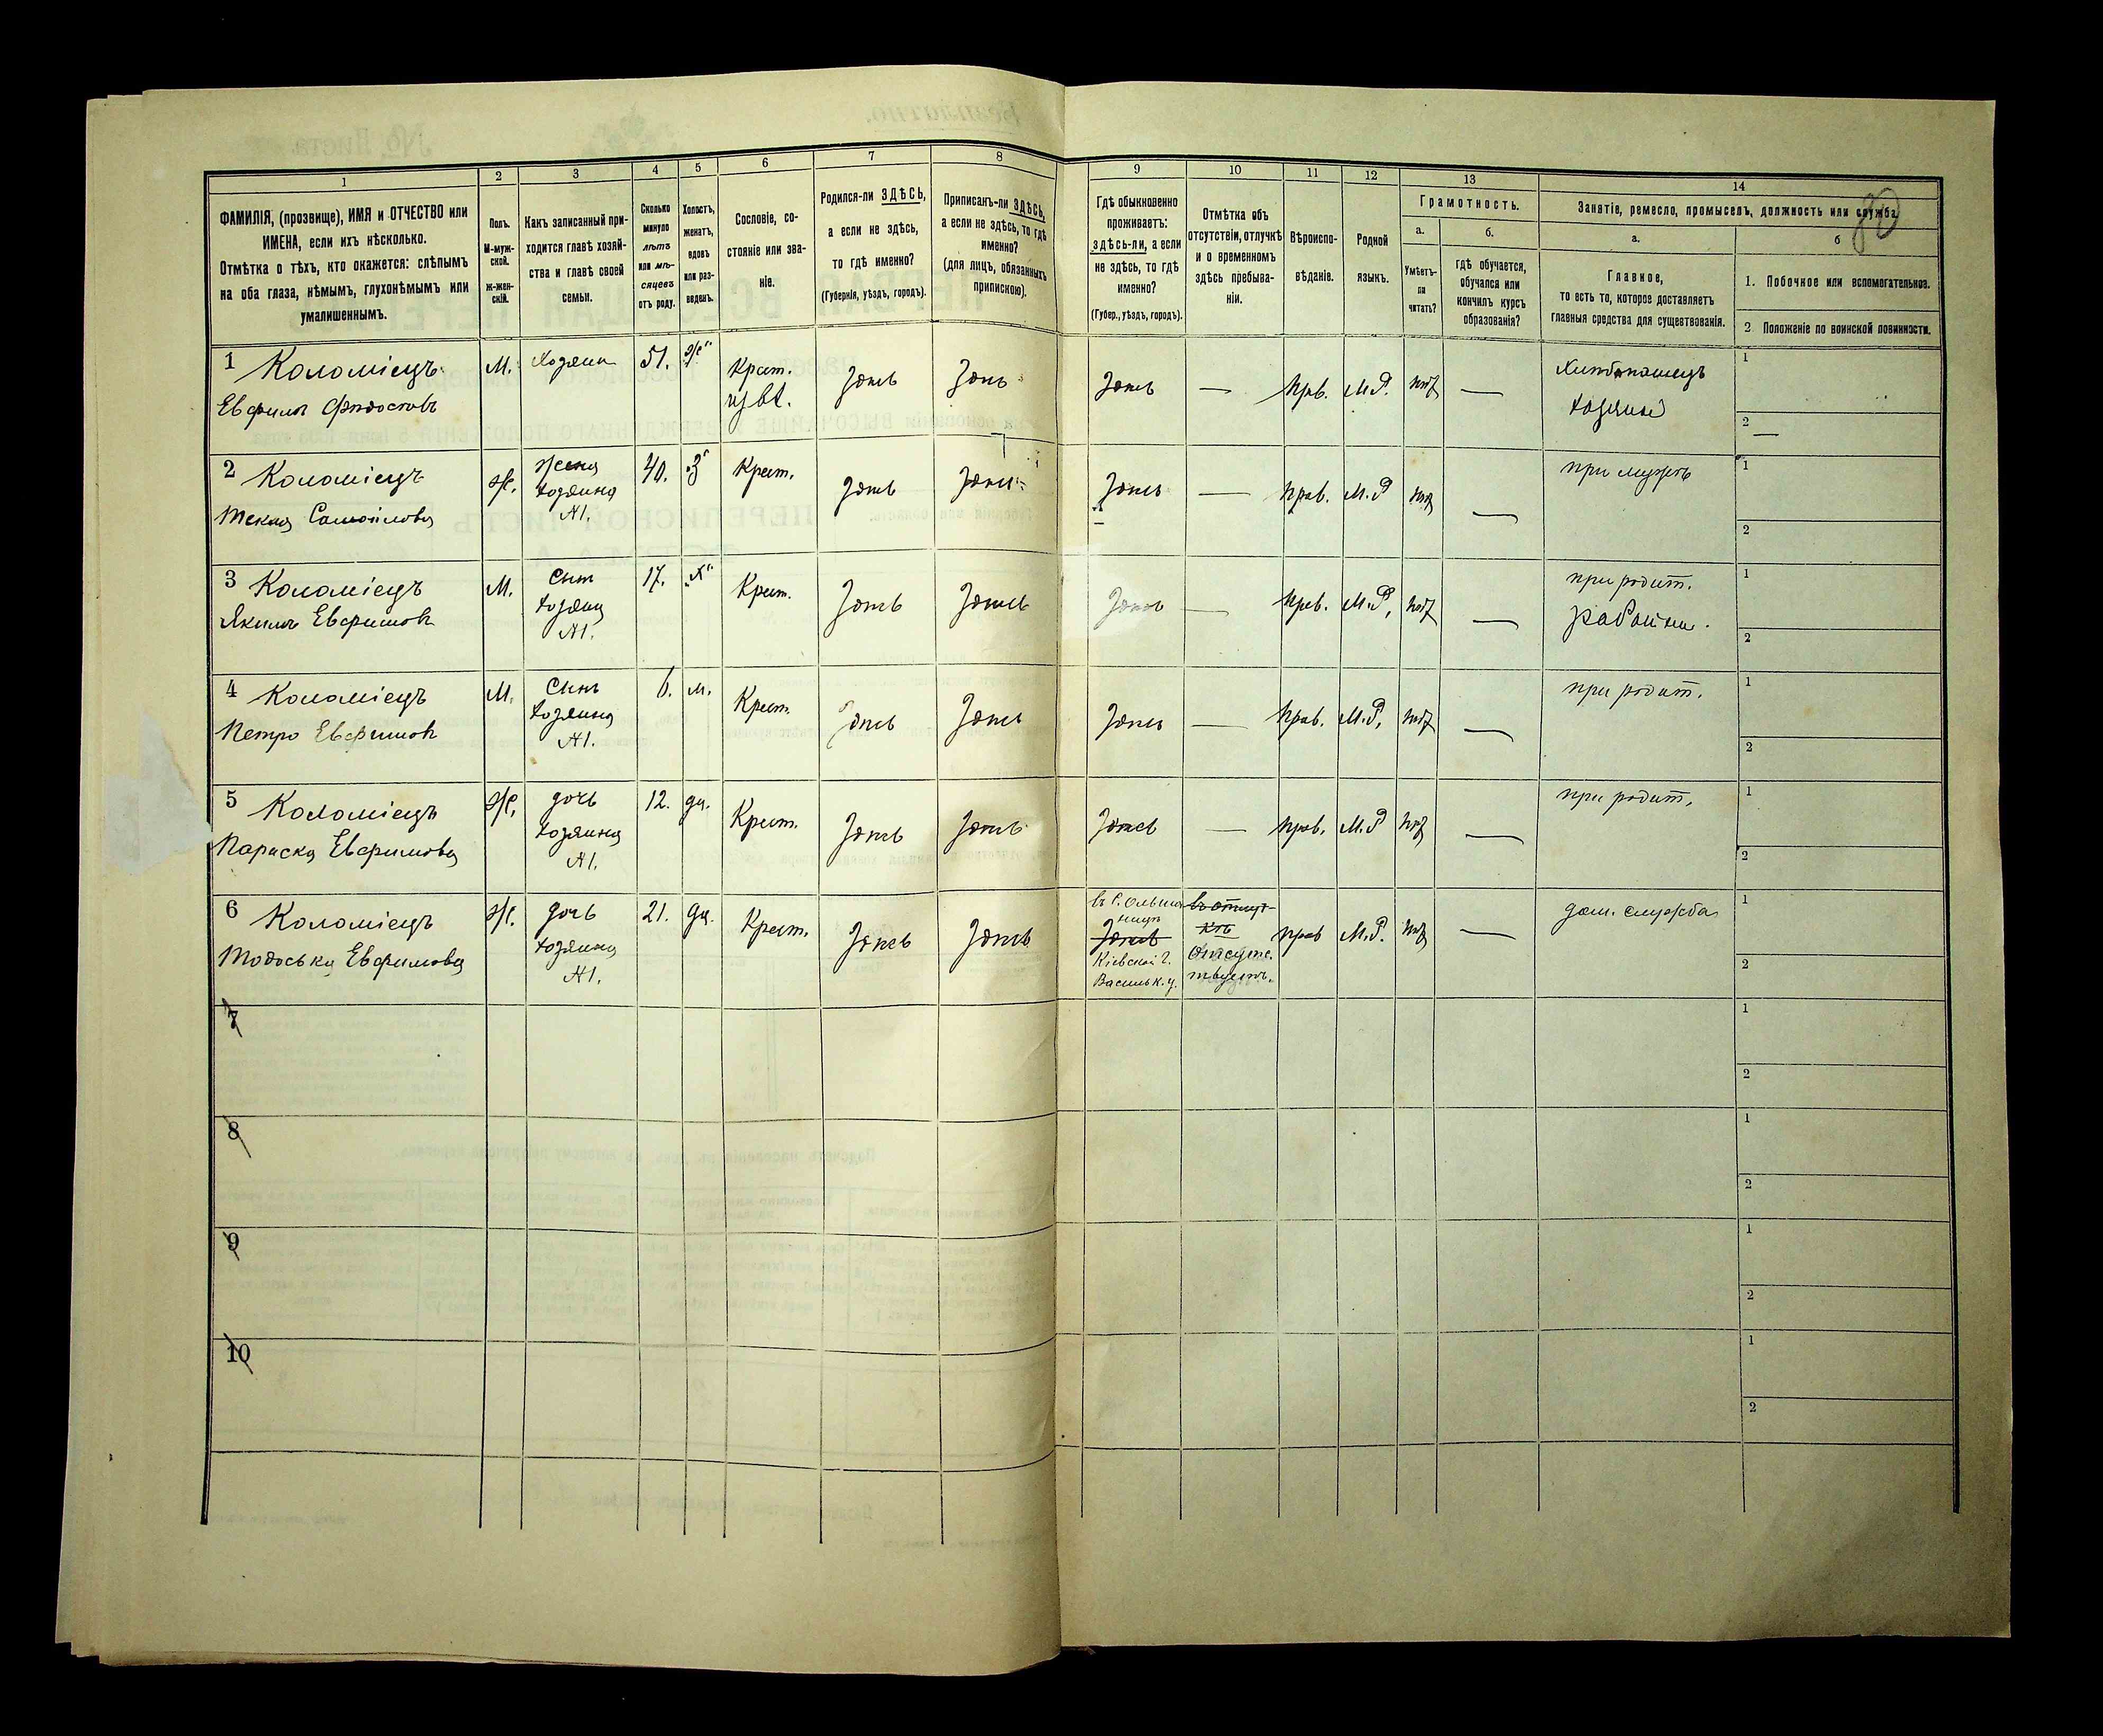 80
1
2
3
4
5
6
7
8
9
10
11
12
13
14
ФАМИЛІЯ, (прозвище), ИМЯ и ОТЧЕСТВО или
ИМЕНА, если ихъ нѣсколько.
Отмѣтка о тѣхъ, кто окажется: слѣпымъ
на оба глаза, нѣмымъ, глухонѣмымъ или
умалишеннымъ.
Полъ.
М-муж-
ской.
Ж-жен-
скій.
Какъ записанный при-
ходится главѣ хозяй-
ства и главѣ своей
семьи.
Сколько
минуло
лѣтъ
или мѣ-
сяцевъ
отъ роду.
Холостъ,
женатъ,
вдовъ
или раз-
веденъ.
Сословіе, со-
стояніе или зва-
ніе.
Родился-ли ЗДѢСЬ,
а если не здѣсь,
то гдѣ именно?
(Губернія, уѣздъ, городъ).
Приписанъ-ли ЗДѢСЬ,
а если не здѣсь, то гдѣ
именно?
(для лицъ, обязанныхъ
припискою).
Гдѣ обыкновенно
проживаетъ:
здѣсь-ли, а если
не здѣсь, то гдѣ
именно?
(Губер., уѣздъ, городъ).
Отмѣтка объ
отсутствіи, отлучкѣ
и о временномъ
здѣсь пребыва-
ніи.
Вѣроиспо-
вѣданіе.
Родной
языкъ.
Грамотность.
а.
Умѣетъ-
ли
читать?
б.
гдѣ обучается,
обучался или
кончилъ курсъ
образованія?
Занятіе, ремесло, промыселъ, должность или служба.
а.
Главное,
то есть то, которое доставляетъ
главныя средства для существованія.
б
1. Побочное или вспомогательное.
2 Положеніе по воинской повинности.
1 Коломіецъ
Евфимъ Федосіовъ
М.
Хозяин
51.
"ж"
Крест.
Здѣсь
Здѣсь
Здѣсь
—
прав.
М.Р.
нѣт
—
Хлѣбопашецъ
хозяинъ
1
2 —
2 Коломіецъ
Текля Самойлова
ж.
жена
хозяина
№1.
40.
"З"
Крест.
Здѣсь
Здѣсь
Здѣсь
—
прав.
М.Р
нѣт
—
при мужѣ
1
2
3 Коломіецъ
Якимъ Евфимовъ
М.
Сынъ
хозяина
№1.
17.
"Х"
Крест.
Здѣсь
Здѣсь
Здѣсь
—
прав.
М.Р.
нѣт
—
при родит.
работн.
1
2
4 Коломіецъ
Петро Евфимовъ
М.
Сынъ
хозяина
№1.
6.
м.
Крест.
Здѣсь
Здѣсь
Здѣсь
—
прав.
М.Р.
нѣт
—
при родит.
1
2
5 Коломіецъ
Параска Евфимова
ж.
дочь
хозяина
№1.
12.
дѣ.
Крест.
Здѣсь
Здѣсь
Здѣсь
—
прав.
М.Р
нѣт
—
при родит.
1
2
6 Коломіецъ
Тодоська Евфимова
ж.
дочь
хозяина
№1.
21.
дѣ.
Крест.
Здѣсь
Здѣсь
въ С. Ольша
ницѣ
Здѣсь
Кіевской г.
Васильк. у.
въ отлуч-
кѣ
Отсутс.
твуетъ.
прав
М.Р.
нѣт
—
дом. служба
1
2
7
1
2
8
1
2
9
1
2
10
1
2